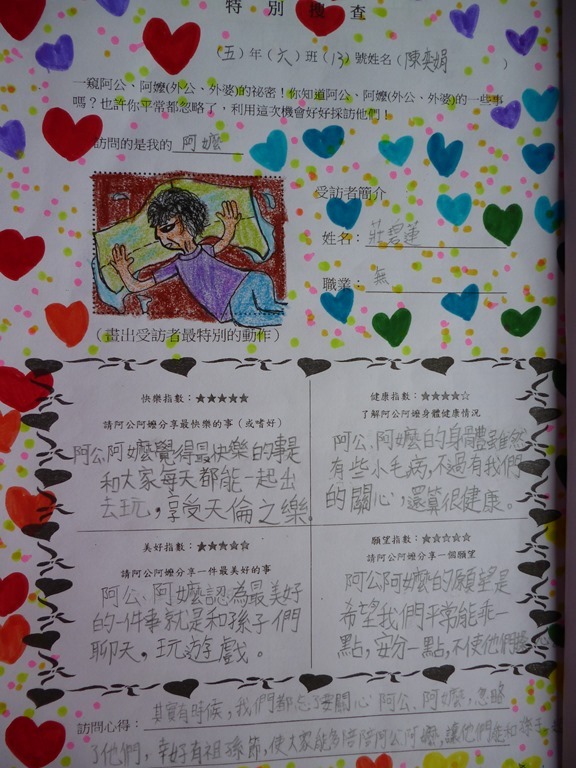 特別搜查
(五)年(六)班(13)號姓名(陳奕娟)
一窺阿公、阿嬤(外公、外婆)的祕密!你知道阿公、阿嬤(外公、外婆)的一些事
嗎?也許你平常都忽略了,利用這次機會好好採訪他們!
訪問的是我的 阿嬤
受訪者簡介
姓名:莊碧蓮
職業:無
(畫出受訪者最特別的動作)
快樂指數:★★★★★
請阿公阿嬤分享最快樂的事(或嗜好)
阿公、阿嬤覺得最快樂的事是
和大家每天都能一起出
去玩,享受天倫之樂。
健康指數:★★★★☆
了解阿公阿嬤身體健康情況
阿公、阿嬤的身體雖然
有些小毛病,不過有我們
的關心,還算很健康。
美好指數:★★★★★
請阿公阿嬤分享一件最美好的事
阿公、阿嬤認為最美好
的一件事就是和孫子們
聊天,玩遊戲。
願望指數:★☆☆☆☆
請阿公阿嬤分享一個願望
阿公阿嬤的願望是
希望我們平常能乖一
點,安分一點,不使他們
訪問心得:其實有時候,我們都忘了要關心阿公、阿嬤,忽略
了他們,幸好有祖孫節,使大家能多陪陪阿公阿嬤,讓他們能和